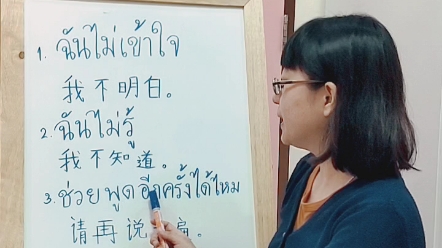 1. ฉันไม่เข้าใจ
我不明白。
2. ฉันไม่รู้
我不知道。
3. ช่วยพูดอีกครั้งได้ไหม
请再说 遍。